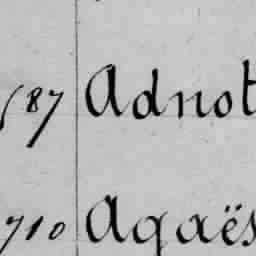 587 Adnot
710 Agaës